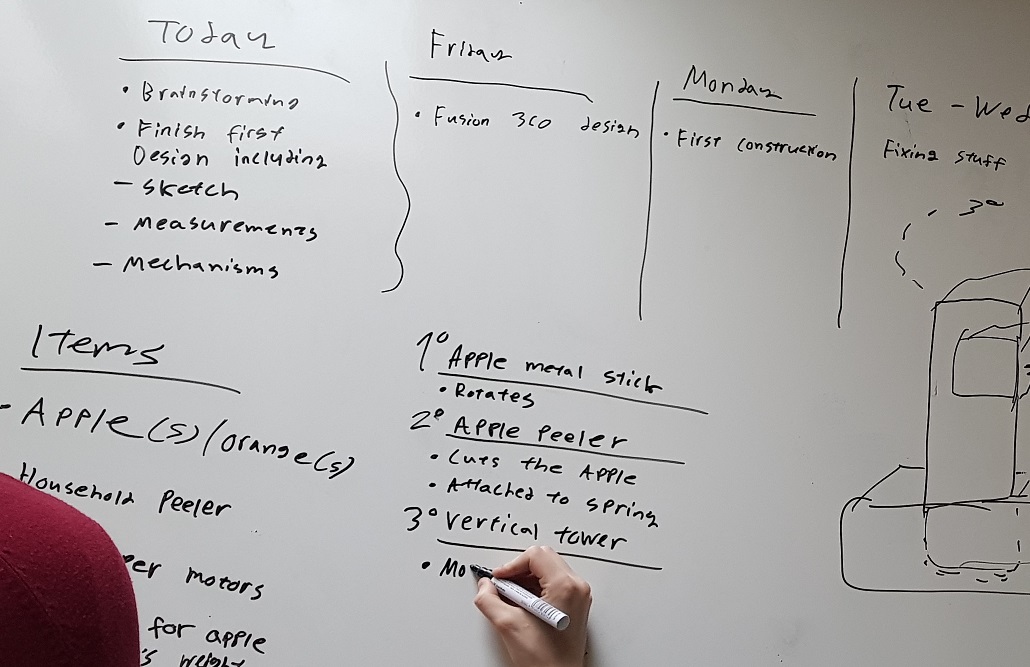 Today
• Brainstorming
• Finish first
Design including
- sketch
- measurements
- mechanisms
Friday
• Fusion 360 design
Monday
• First construction
Tue - Wed
Fixing stuff
3º
Items
- Apple(s)/orange(s)
Household Peeler
motors
for apple
's weight
1º Apple metal stick
• Rotates
2º Apple Peeler
• Cuts the Apple
• Attached to spring
3º Vertical tower
• Mo